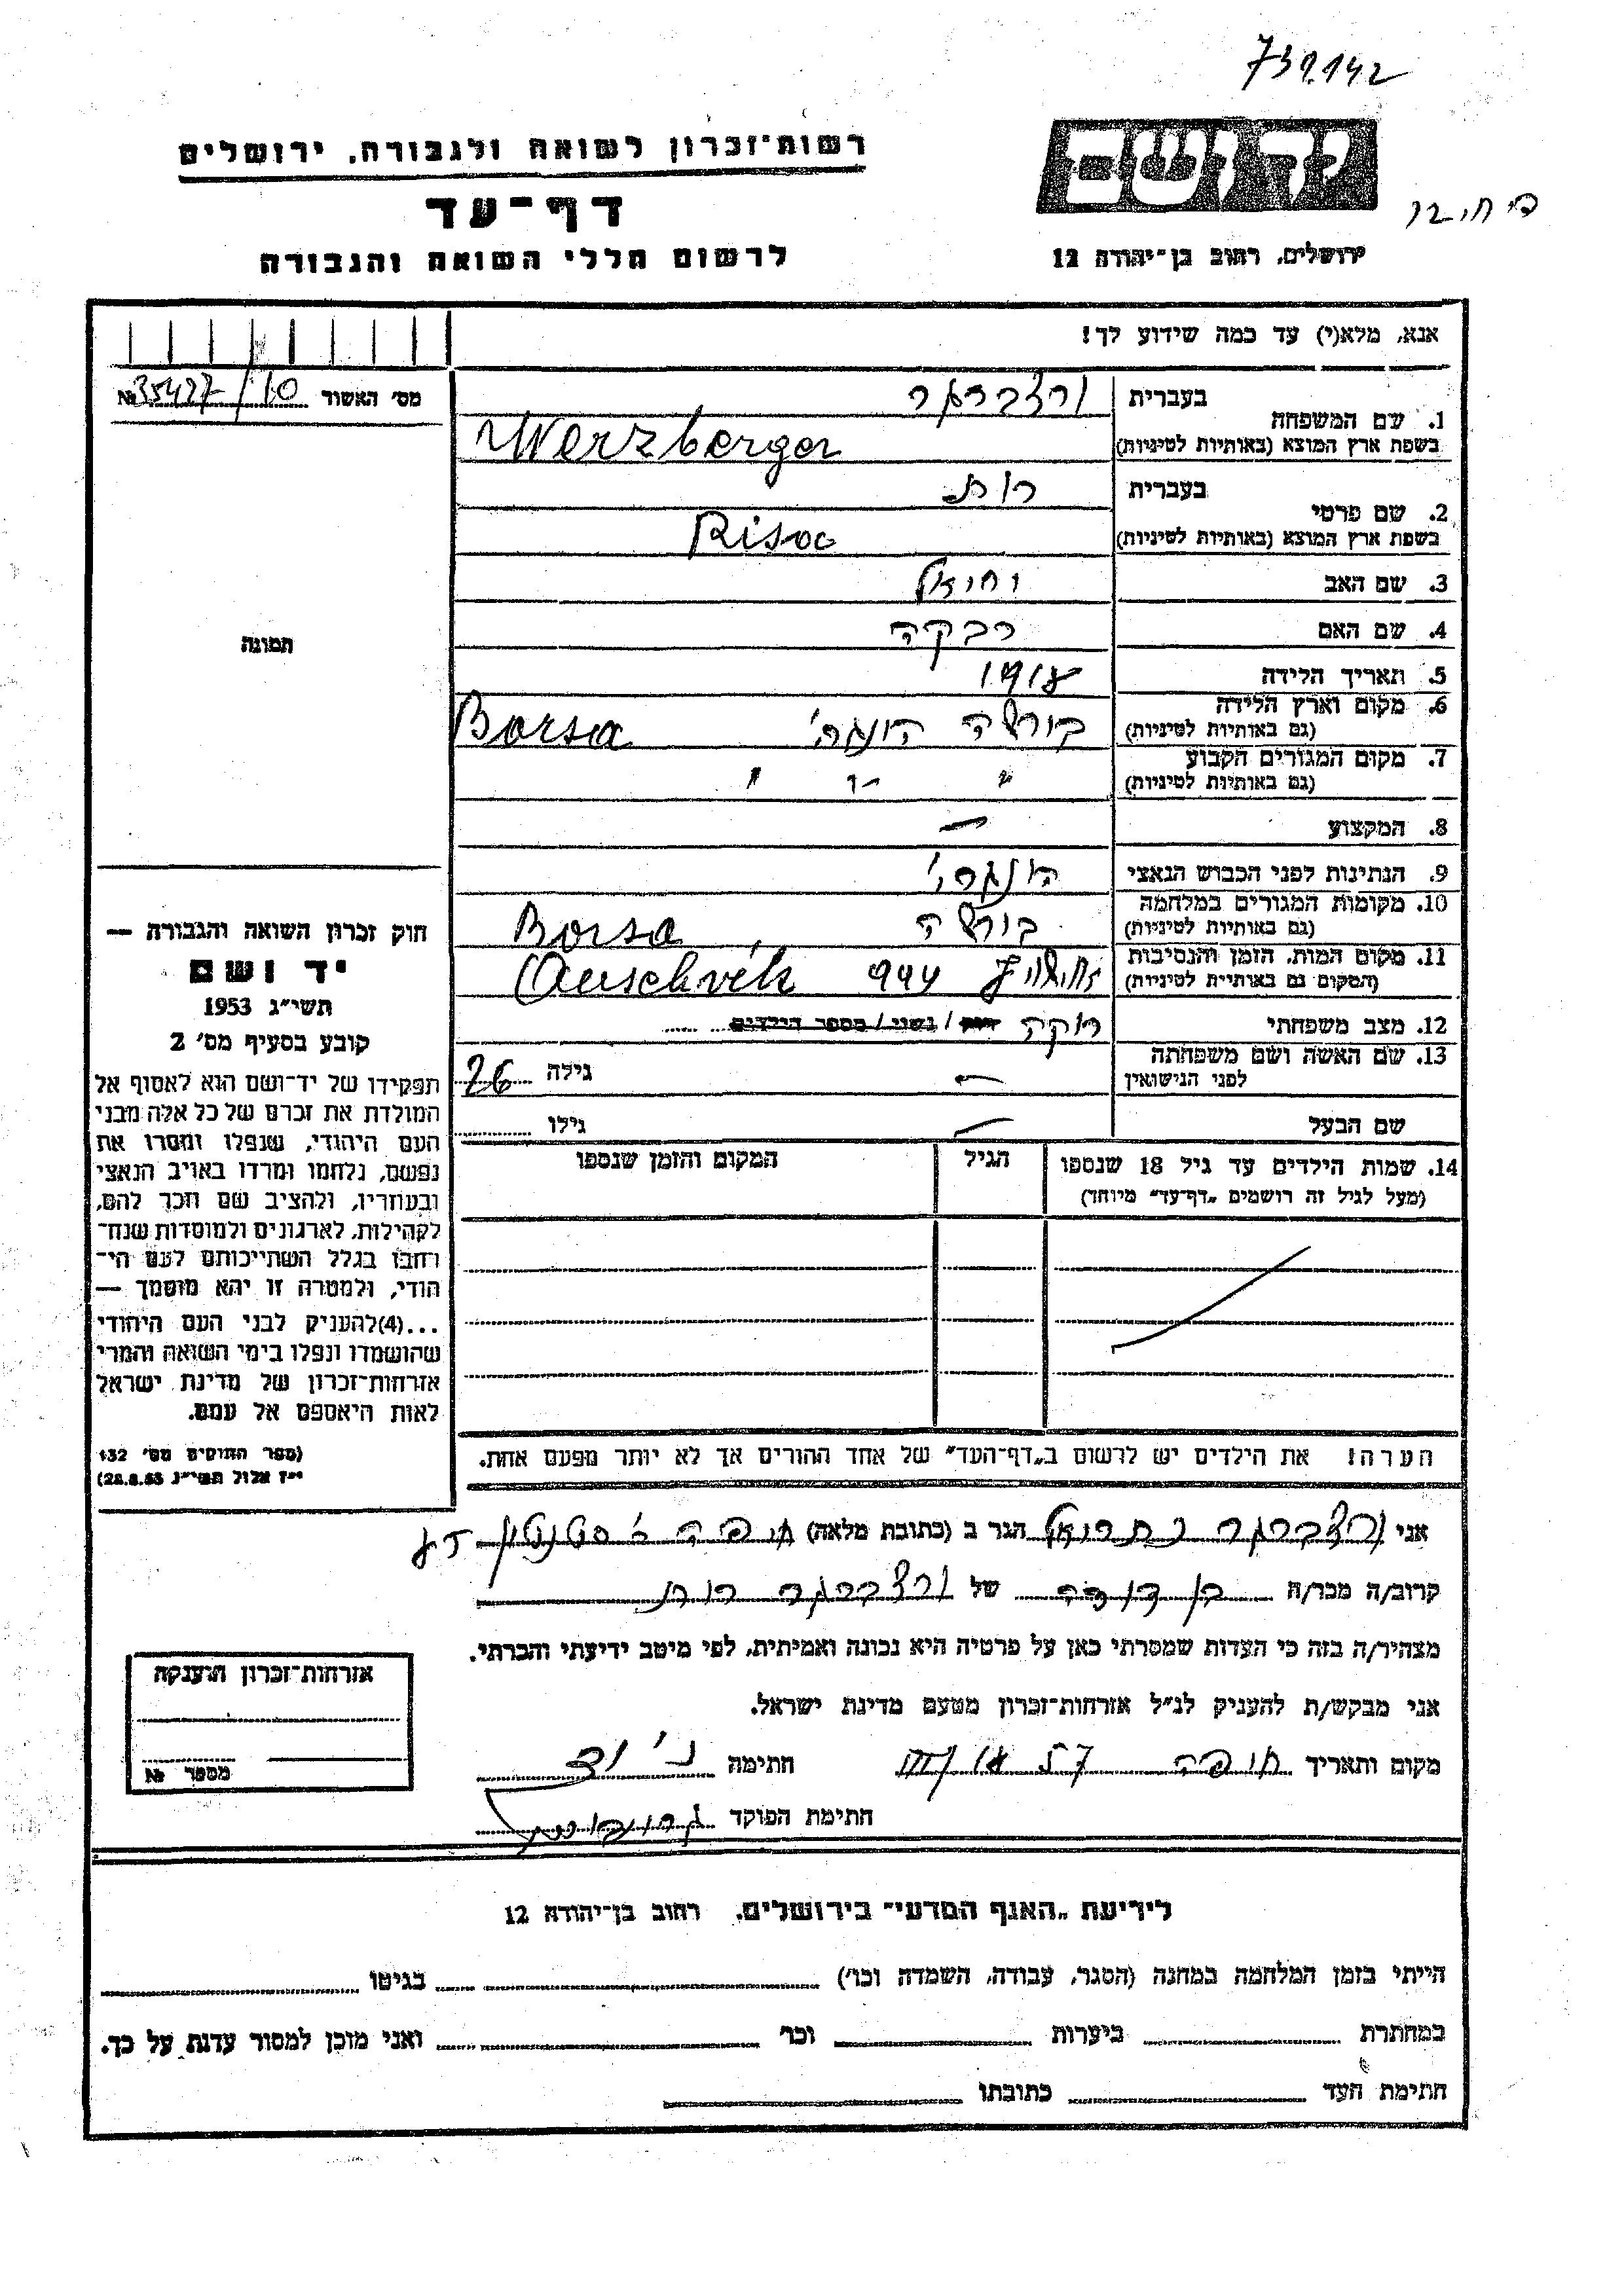 739142
רשות־זכרון לשואה ולגבורה, ירושלים
יד ושם
דף־עד
לרשום חללי השואה והגבורה
ירושלים, רחוב בן־יהודה 12
אנא, מלא(י) עד כמה שידוע לך!
מס׳ האשור 35427/10 №
1. שם המשפחה בעברית ורצברגר
בשפת ארץ המוצא (באותיות לטיניות) Werzberger
2. שם פרטי בעברית רות
בשפת ארץ המוצא (באותיות לטיניות) Risa
3. שם האב יחיאל
4. שם האם רבקה
5. תאריך הלידה 1918
6. מקום וארץ הלידה
(גם באותיות לטיניות) בורשה הונגר׳ Borsa
7. מקום המגורים הקבוע
(גם באותיות לטיניות) " -"- "
8. המקצוע —
9. הנתינות לפני הכבוש הנאצי הונגר׳
10. מקומות המגורים במלחמה
(גם באותיות לטיניות) בורשה, Borsa
11. מקום המות, הזמן והנסיבות
(המקום גם באותיות לטיניות) אושויץ 944 Auschvitz
12. מצב משפחתי רוקה רווק / נשוי / מספר הילדים
13. שם האשה ושם משפחתה
לפני הנישואין — גילה 26
שם הבעל — גילו
14. שמות הילדים עד גיל 18 שנספו הגיל המקום והזמן שנספו
(מעל לגיל זה רושמים „דף־עד״ מיוחד)
הערה! את הילדים יש לרשום ב„דף־העד״ של אחד ההורים אך לא יותר מפעם אחת.
תמונה
חוק זכרון השואה והגבורה —
יד ושם
תשי״ג 1953
קובע בסעיף מס׳ 2
תפקידו של יד־ושם הוא לאסוף אל
המולדת את זכרם של כל אלה מבני
העם היהודי, שנפלו ומסרו את
נפשם, נלחמו ומרדו באויב הנאצי
ובעוזריו, ולהציב שם וזכר להם,
לקהילות, לארגונים ולמוסדות שנח־
רחבו בגלל השתייכותם לעם הי־
הודי, ולמטרה זו יהא מוסמך —
...(4)להעניק לבני העם היהודי
שהושמדו ונפלו בימי השואה והמרי
אזרחות־זכרון של מדינת ישראל
לאות היאספם אל עמם.
(ספר החוקים מס׳ 132
י״ז אלול תשי״ג 28.8.53)
אני ורצברגר יחיאל הגר ב (כתובת מלאה) חיפה
קרוב/ה מכר/ה בן דודה של ורצברגר רות
מצהיר/ה בזה כי העדות שמסרתי כאן על פרטיה היא נכונה ואמיתית, לפי מיטב ידיעתי והכרתי.
אני מבקש/ת להעניק לנ״ל אזרחות־זכרון מטעם מדינת ישראל.
מקום ותאריך חיפה חתימה
חתימת הפוקד
אזרחות־זכרון הוענקה
מספר №
לידיעת „האגף המדעי״ בירושלים, רחוב בן־יהודה 12
הייתי בזמן המלחמה במחנה (הסגר, עבודה, השמדה וכו׳) בגיטו
במחתרת ביערות וכו׳ ואני מוכן למסור עדות על כך.
חתימת העד כתובתו